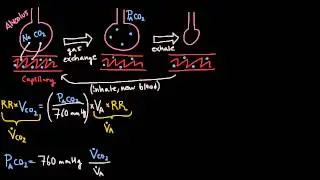 Alveolus
N₂ CO₂
gas exchange
PₐCO₂
exhale
Capillary
(inhale, new blood)
RR × V_CO₂ = (PₐCO₂ / 760 mmHg) × Vₐ × RR
V̇_CO₂
V̇ₐ
PₐCO₂ = 760 mmHg V̇_CO₂ / V̇ₐ